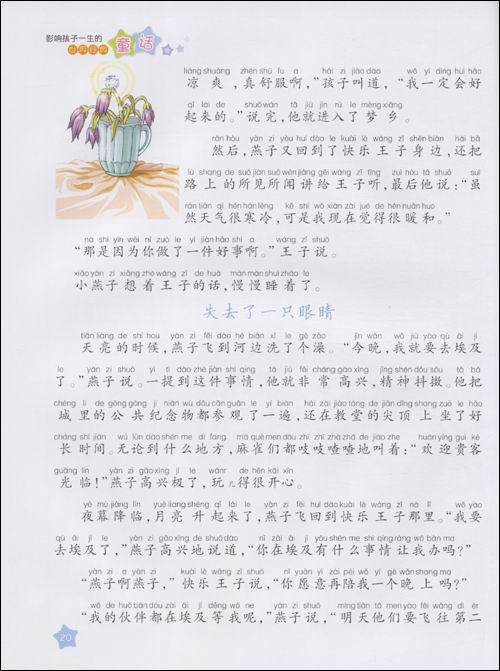 影响孩子一生的
世界经典
童话
liáng shuǎng zhēn shū fu a hái zi jiào dào wǒ yí dìng huì hǎo
凉爽，真舒服啊，”孩子叫道，“我一定会好
qǐ lái de shuō wán tā jiù jìn rù le mèng xiāng
起来的。”说完，他就进入了梦乡。
rán hòu yàn zi yòu huí dào le kuài lè wáng zǐ shēn biān hái bǎ
然后，燕子又回到了快乐王子身边，还把
lù shang de suǒ jiàn suǒ wén jiǎng gěi wáng zǐ tīng zuì hòu tā shuō suī
路上的所见所闻讲给王子听，最后他说：“虽
rán tiān qì hěn hán lěng kě shì wǒ xiàn zài jué de hěn nuǎn huo
然天气很寒冷，可是我现在觉得很暖和。”
nà shì yīn wèi nǐ zuò le yí jiàn hǎo shì a wáng zǐ shuō
“那是因为你做了一件好事啊。”王子说。
xiǎo yàn zi xiǎng zhe wáng zǐ de huà màn màn shuì zháo le
小燕子想着王子的话，慢慢睡着了。
失去了一只眼睛
tiān liàng de shí hou yàn zi fēi dào hé biān xǐ le gè zǎo jīn wǎn wǒ jiù yào qù āi jí
天亮的时候，燕子飞到河边洗了个澡。“今晚，我就要去埃及
le yàn zi shuō yì tí dào zhè jiàn shì qing tā jiù fēi cháng gāo xìng jīng shén dǒu sǒu tā bǎ
了。”燕子说。一提到这件事情，他就非常高兴，精神抖擞。他把
chéng lǐ de gōng gòng jì niàn wù dōu cān guān le yí biàn hái zài jiào táng de jiān dǐng shang zuò le hǎo
城里的公共纪念物都参观了一遍，还在教堂的尖顶上坐了好
cháng shí jiān wú lùn dào shén me dì fang má què men dōu zhī zhī zhā zhā de jiào zhe huān yíng guì kè
长时间。无论到什么地方，麻雀们都吱吱喳喳地叫着：“欢迎贵客
guāng lín yàn zi gāo xìng jí le wánr de hěn kāi xīn
光临！”燕子高兴极了，玩儿得很开心。
yè mù jiàng lín yuè liang shēng qǐ lái le yàn zi fēi huí dào kuài lè wáng zǐ nà lǐ wǒ yào
夜幕降临，月亮升起来了，燕子飞回到快乐王子那里。“我要
qù āi jí le yàn zi gāo xìng de shuō dào nǐ zài āi jí yǒu shén me shì qing ràng wǒ bàn ma
去埃及了，”燕子高兴地说道，“你在埃及有什么事情让我办吗？”
yàn zi a yàn zi kuài lè wáng zǐ shuō nǐ yuàn yì zài péi wǒ yí gè wǎn shang ma
“燕子啊燕子，”快乐王子说，“你愿意再陪我一个晚上吗？”
wǒ de huǒ bàn dōu zài āi jí děng wǒ ne yàn zi shuō míng tiān tā men yào fēi wǎng dì èr
“我的伙伴都在埃及等我呢，”燕子说，“明天他们要飞往第二
20